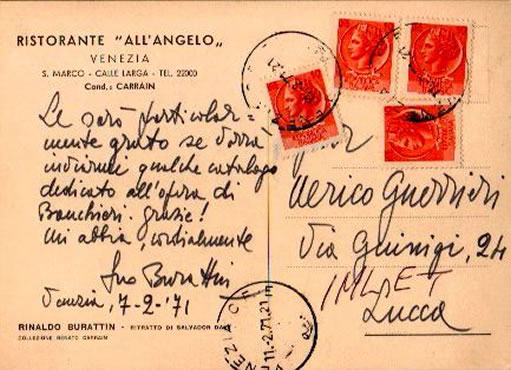 RISTORANTE "ALL'ANGELO„
VENEZIA
S. MARCO - CALLE LARGA - TEL. 22000
Cond.: CARRAIN
Le sarò particolar-
mente grato se vorrà
inviarmi qualche catalogo
dedicato all'opera di
Banchieri. Grazie!
Mi abbia, cordialmente
Suo Burattin
Venezia, 7-2-'71
RINALDO BURATTIN - RITRATTO DI SALVADOR DALI
COLLEZIONE RENATO CARRAIN
Guerrieri
Via Guinigi, 24
Lucca
11.-2.71.21